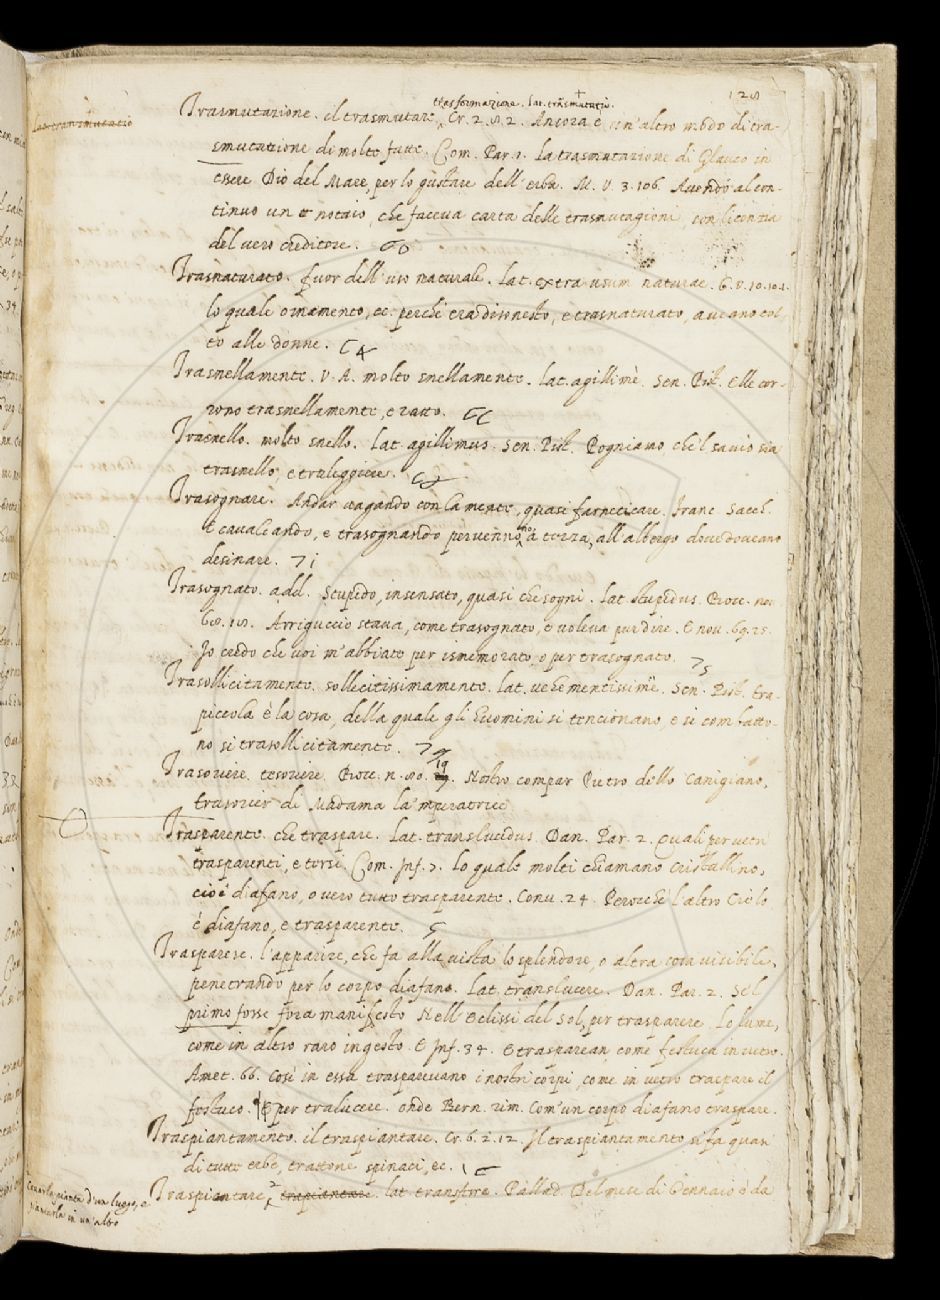 128
trasformazione. lat. trasmutatio.
Trasmutazione. il trasmutare, Cr. 2. 8. 2. Ancora è un'altro modo di tra-
lat. transmutatio
smutazione di molte fatte. Com. Par. 1. La trasmutazione di Glauco in
essere Dio del Mare, per lo gustare dell'erba. M. V. 3. 106. Avendo al con-
tinuo un notaio, che faceva carta delle trasmutagioni, con licenzia
del vero creditore.
Trasnaturato. fuor dell'uso naturale. Lat. extra usum naturae. G. V. 10. 10.
lo quale ornamento, ec. perchè era disonesto, e trasnaturato, aveano tol-
to alle donne.
Trasnellamente. V. A. molto snellamente. Lat. agillimè. Sen. Pist. Elle cor-
rono trasnellamente, e ratto.
Trasnello. molto snello. Lat. agillimus. Sen. Pist. Pogniamo che'l savio sia
trasnello, e traleggiere.
Trasognare. Andar vagando con la mente, quasi farneticare. Franc. Sacch.
E cavalcando, e trasognando pervenno a terza, all'albergo dove doveano
desinare.
Trasognato. add. Stupido, insensato, quasi che sogni. Lat. stupidus. Bocc. nov.
60. 18. Arriguccio stava, come trasognato, e voleva pur dire. E nov. 69. 28.
Io credo che voi m'abbiate per ismemorato, o per trasognato.
Trasollicitamente. sollecitissimamente. Lat. vehementissime. Sen. Pist. tra-
piccola è la cosa, della quale gli huomini si tencionano, e si combatto-
no si trasollicitamente.
Trasoriere. tesoriere. Bocc. n. 80. 19. Nostro compar Pietro dello Canigiano,
trasorier di Madama la 'mperatrice
Trasparente. che traspare. Lat. translucidus. Dan. Par. 2. Quali per vetri
trasparenti, e tersi. Com. Inf. 7. Lo quale molti chiamano Cristallino,
cioè diafano, o vero tutto trasparente. Conv. 24. Perocchè l'altro Cielo
è diafano, e trasparente.
Trasparere. l'apparire, che fa alla vista lo splendore, o altra cosa visibile,
penetrando per lo corpo diafano. Lat. translucere. Dan. Par. 2. Se'l
primo fosse fora manifesto Nell'Eclissi del Sol, per trasparere Lo lume,
come in altro raro ingesto. E Inf. 34. E trasparean come festuca in vetro.
Amet. 66. Così in essa trasparevano i nostri corpi, come in vetro traspare il
festuco. E per tralucere. onde Bern. rim. Com'un corpo diafano traspare.
Traspiantamento. il traspiantare. Cr. 6. 2. 12. Il traspiantamento si fa quasi
di tutte erbe, trattone spinaci, ec.
Traspiantare, trapiantare. lat. transferre. Pallad. Del mese di Gennaio è da
Cavar la pianta d'un luogo, e
piantarla in un'altro